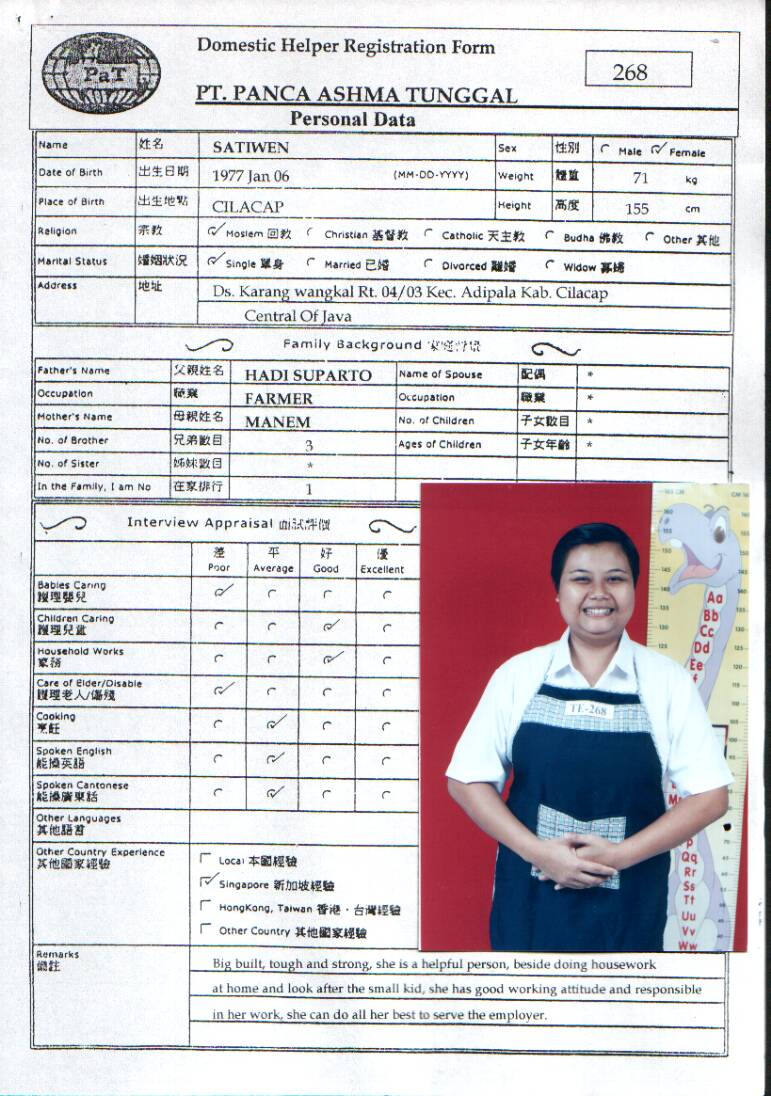 Domestic Helper Registration Form
268
PaT
PT. PANCA ASHMA TUNGGAL
Personal Data
Name 姓名 SATIWEN Sex 性別 Male Female
Date of Birth 出生日期 1977 Jan 06 (MM-DD-YYYY) Weight 體重 71 kg
Place of Birth 出生地點 CILACAP Height 高度 155 cm
Religion 宗教 Moslem 回教 Christian 基督教 Catholic 天主教 Budha 佛教 Other 其他
Marital Status 婚姻狀況 Single 單身 Married 已婚 Divorced 離婚 Widow 寡婦
Address 地址 Ds. Karang wangkal Rt. 04/03 Kec. Adipala Kab. Cilacap
Central Of Java
Family Background 家庭背景
Father's Name 父親姓名 HADI SUPARTO Name of Spouse 配偶 *
Occupation 職業 FARMER Occupation 職業 *
Mother's Name 母親姓名 MANEM No. of Children 子女數目 *
No. of Brother 兄弟數目 3 Ages of Children 子女年齡 *
No. of Sister 姊妹數目 *
In the Family, I am No 在家排行 1
Interview Appraisal 面試評價
差 平 好 優
Poor Average Good Excellent
Babies Caring
護理嬰兒
Children Caring
護理兒童
Household Works
家務
Care of Elder/Disable
護理老人/傷殘
Cooking
烹飪
Spoken English
能操英語
Spoken Cantonese
能操廣東話
Other Languages
其他語言
Other Country Experience
其他國家經驗
Local 本國經驗
Singapore 新加坡經驗
HongKong, Taiwan 香港·台灣經驗
Other Country 其他國家經驗
TE-268
Aa
Bb
Cc
Dd
Ee
f
Qq
Rr
Ss
Tt
Uu
Vv
Ww
Remarks
備註
Big built, tough and strong, she is a helpful person, beside doing housework
at home and look after the small kid, she has good working attitude and responsible
in her work, she can do all her best to serve the employer.